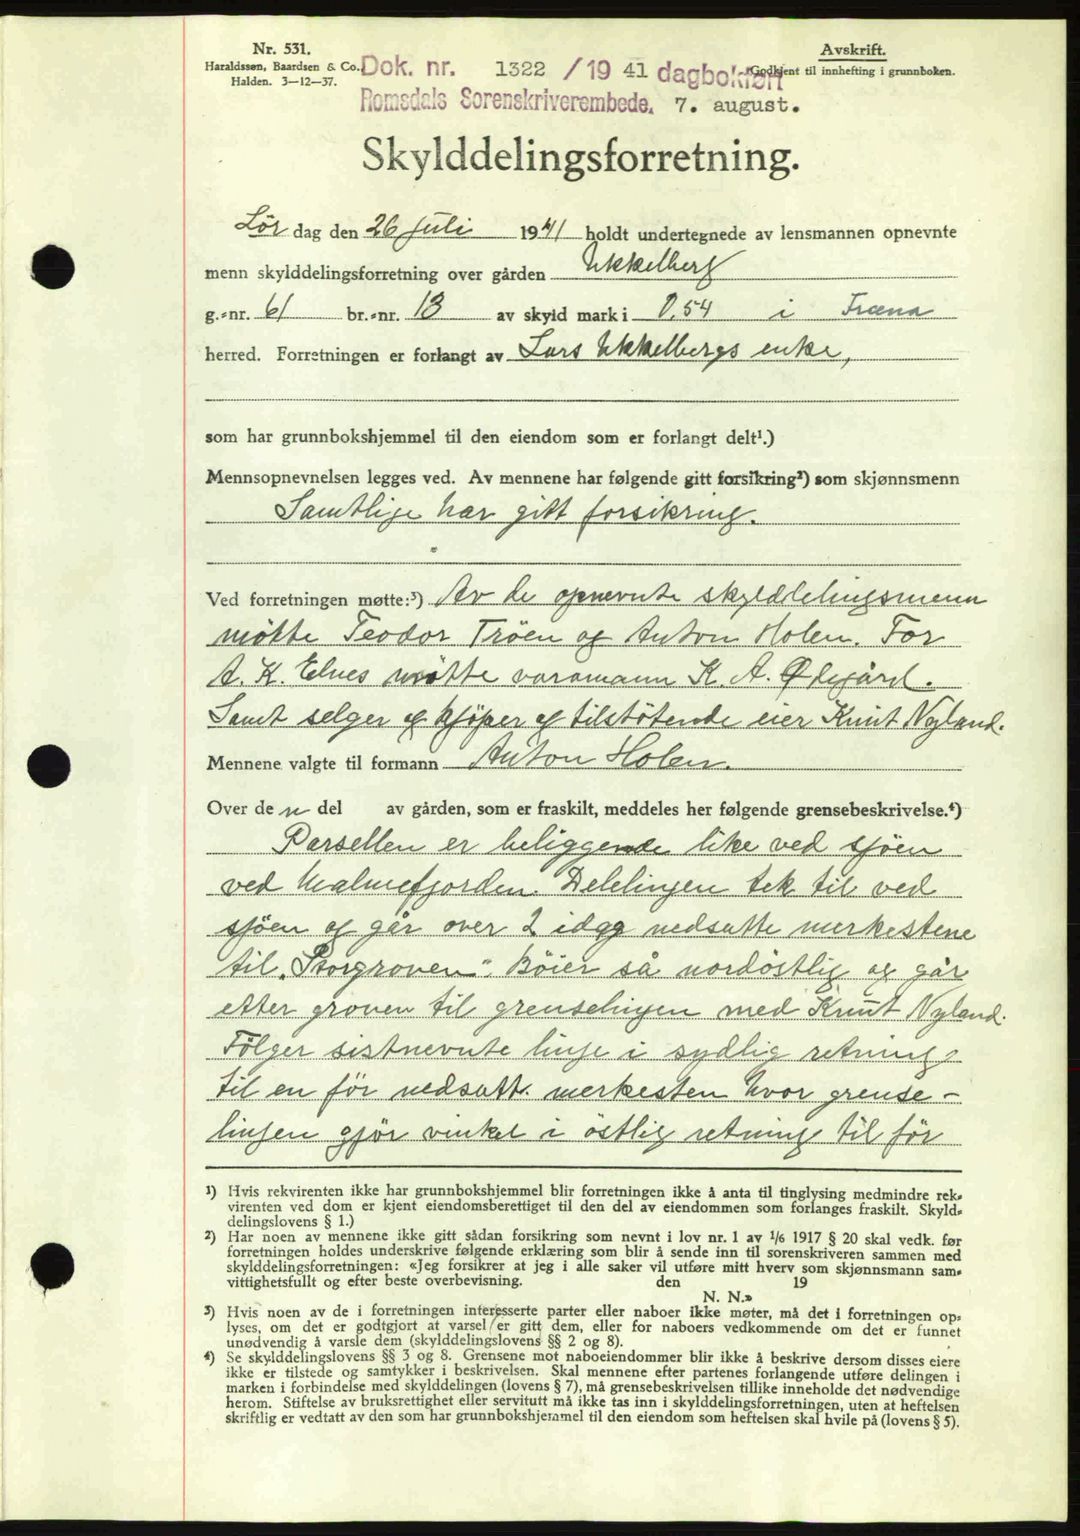 Nr. 531.
Haraldssøn, Baardsen & Co.
Halden. 3—12—37.
Avskrift.
Godkjent til innhefting i grunnboken.
Dok. nr. 1322 / 19 41 dagbokført
Romsdals Sorenskriverembede. 7. august.
Skylddelingsforretning.
Lør dag den 26 juli 1941 holdt undertegnede av lensmannen opnevnte
menn skylddelingsforretning over gården Ukkelberg
g.-nr. 61 br.-nr. 13 av skyld mark i 0,54 i Fræna
herred. Forretningen er forlangt av Lars Ukkelbergs enke,
som har grunnbokshjemmel til den eiendom som er forlangt delt¹.)
Mennsopnevnelsen legges ved. Av mennene har følgende gitt forsikring²) som skjønnsmenn
Samtlige har gitt forsikring.
Ved forretningen møtte:³) Av de opnevnte skylddelingsmenn
møtte Teodor Tröen og Anton Holen. For
A. K. Elnes møtte varamann K. A. Ødegård.
Samt selger og kjöper og tilstötende eier Knut Nyland.
Mennene valgte til formann Anton Holen.
Over de n del av gården, som er fraskilt, meddeles her følgende grensebeskrivelse.⁴)
Parsellen er beliggende like ved sjöen
ved Malmefjorden. Delelinjen tek til ved
sjöen og går over 2 idag nedsatte merkestene
til „Storgroven“. Böier så nordöstlig og går
etter groven til grenselinjen med Knut Nyland.
Fölger sistnevnte linje i sydlig retning
til en för nedsatt merkesten hvor grense-
linjen gjör vinkel i östlig retning til för
¹) Hvis rekvirenten ikke har grunnbokshjemmel blir forretningen ikke å anta til tinglysing medmindre rek-
virenten ved dom er kjent eiendomsberettiget til den del av eiendommen som forlanges fraskilt. Skyld-
delingslovens § 1.)
²) Har noen av mennene ikke gitt sådan forsikring som nevnt i lov nr. 1 av 1/6 1917 § 20 skal vedk. før
forretningen holdes underskrive følgende erklæring som blir å sende inn til sorenskriveren sammen med
skylddelingsforretningen: «Jeg forsikrer at jeg i alle saker vil utføre mitt hverv som skjønnsmann sam-
vittighetsfullt og efter beste overbevisning. den 19
N. N.»
³) Hvis noen av de i forretningen interesserte parter eller naboer ikke møter, må det i forretningen op-
lyses, om det er godtgjort at varsel er gitt dem, eller for naboers vedkommende om det er funnet
unødvendig å varsle dem (skylddelingslovens §§ 2 og 8).
⁴) Se skylddelingslovens §§ 3 og 8. Grensene mot naboeiendommer blir ikke å beskrive dersom disses eiere
ikke er tilstede og samtykker i beskrivelsen. Skal mennene efter partenes forlangende utføre delingen i
marken i forbindelse med skylddelingen (lovens § 7), må grensebeskrivelsen tillike inneholde det nødvendige
herom. Stiftelse av bruksrettighet eller servitutt må ikke tas inn i skylddelingsforretningen, uten at heftelsen
skriftlig er vedtatt av den som har grunnbokshjemmel til den eiendom som heftelsen skal hvile på (lovens § 5).